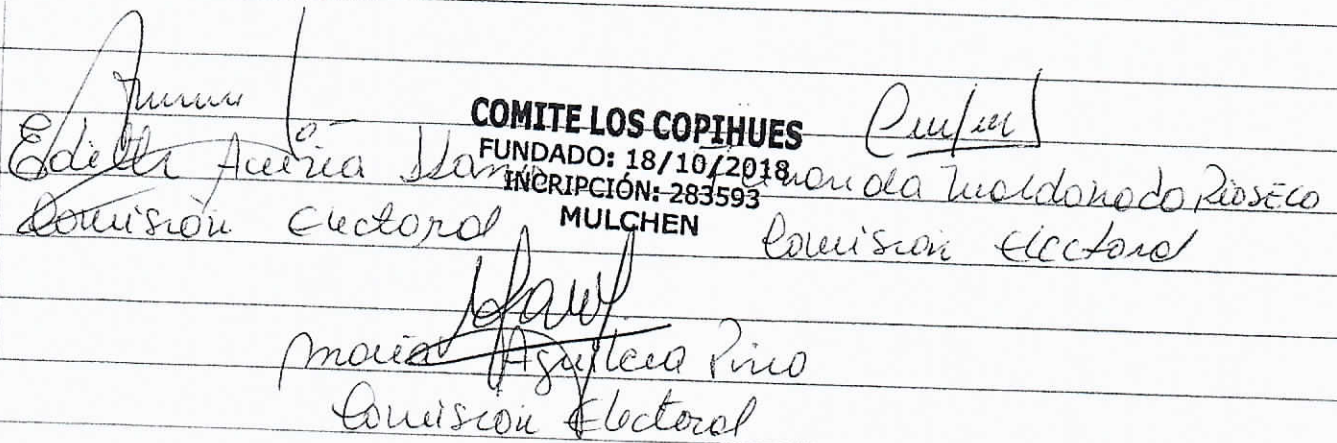 COMITE LOS COPIHUES
FUNDADO: 18/10/2018
INCRIPCIÓN: 283593
MULCHEN
Edith
Comisión Electoral
Maldonado Rioseco
Comisión Electoral
Maria Aguilera Pino
Comisión Electoral